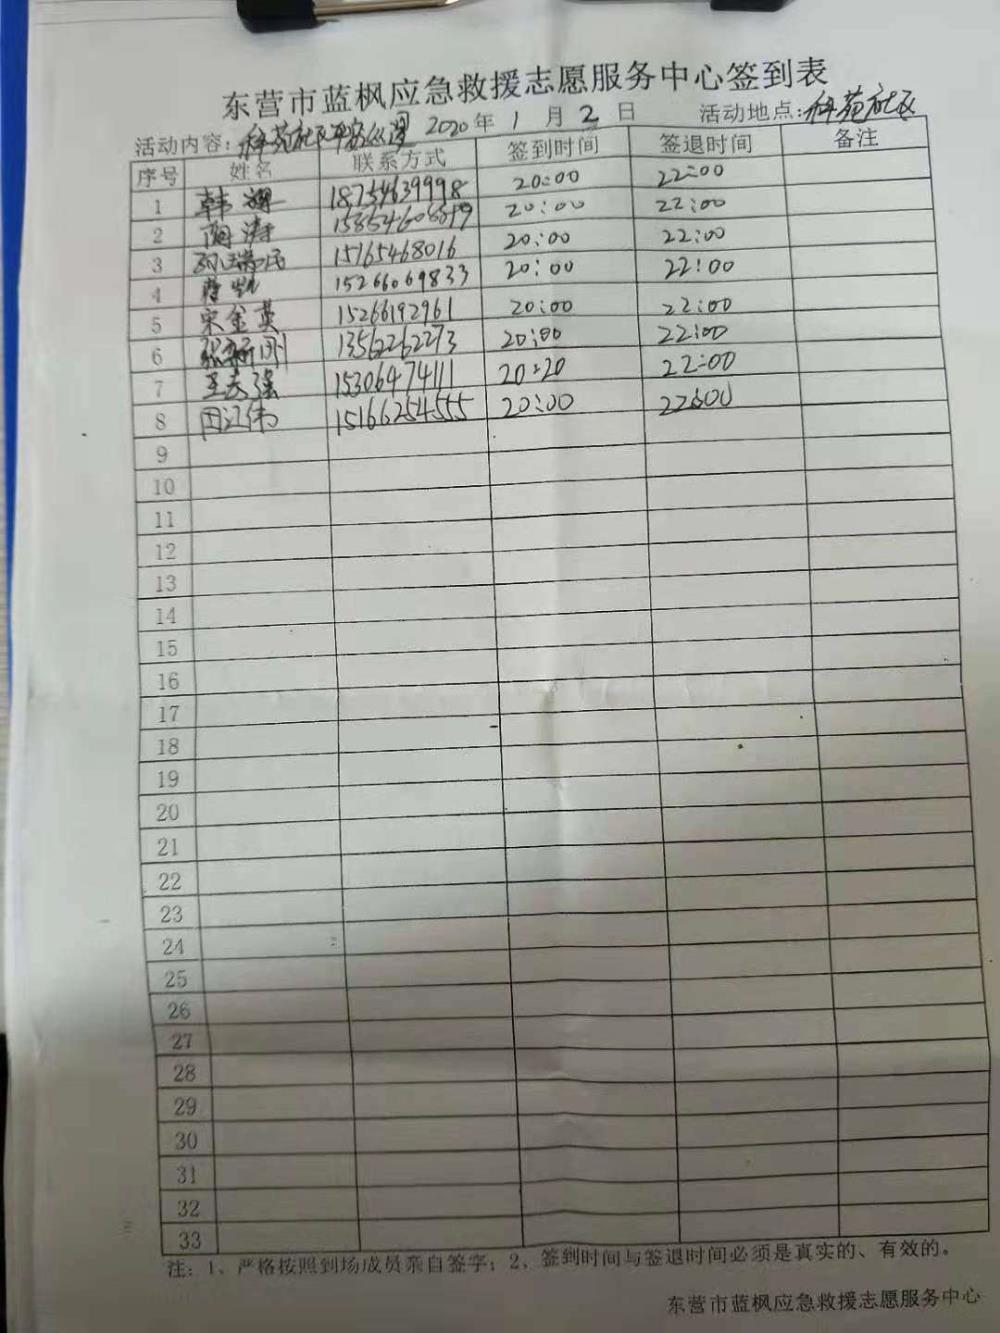 东营市蓝枫应急救援志愿服务中心签到表
活动内容：科苑社区平安 2020年1月2日 活动地点：科苑社区
序号 姓名 联系方式 签到时间 签退时间 备注
1 韩 18754639998 20:00 22:00
2 涛 15854608819 20:00 22:00
3 孙瑞民 15165468016 20:00 22:00
4 15266069833 20:00 22:00
5 宋金英 15266192961 20:00 22:00
6 张 刚 13562262273 20:00 22:00
7 王 强 15306474111 20:20 22:00
8 田江伟 15166254555 20:00 22:00
9
10
11
12
13
14
15
16
17
18
19
20
21
22
23
24
25
26
27
28
29
30
31
32
33
注：1、严格按照到场成员亲自签字；2、签到时间与签退时间必须是真实的、有效的。
东营市蓝枫应急救援志愿服务中心